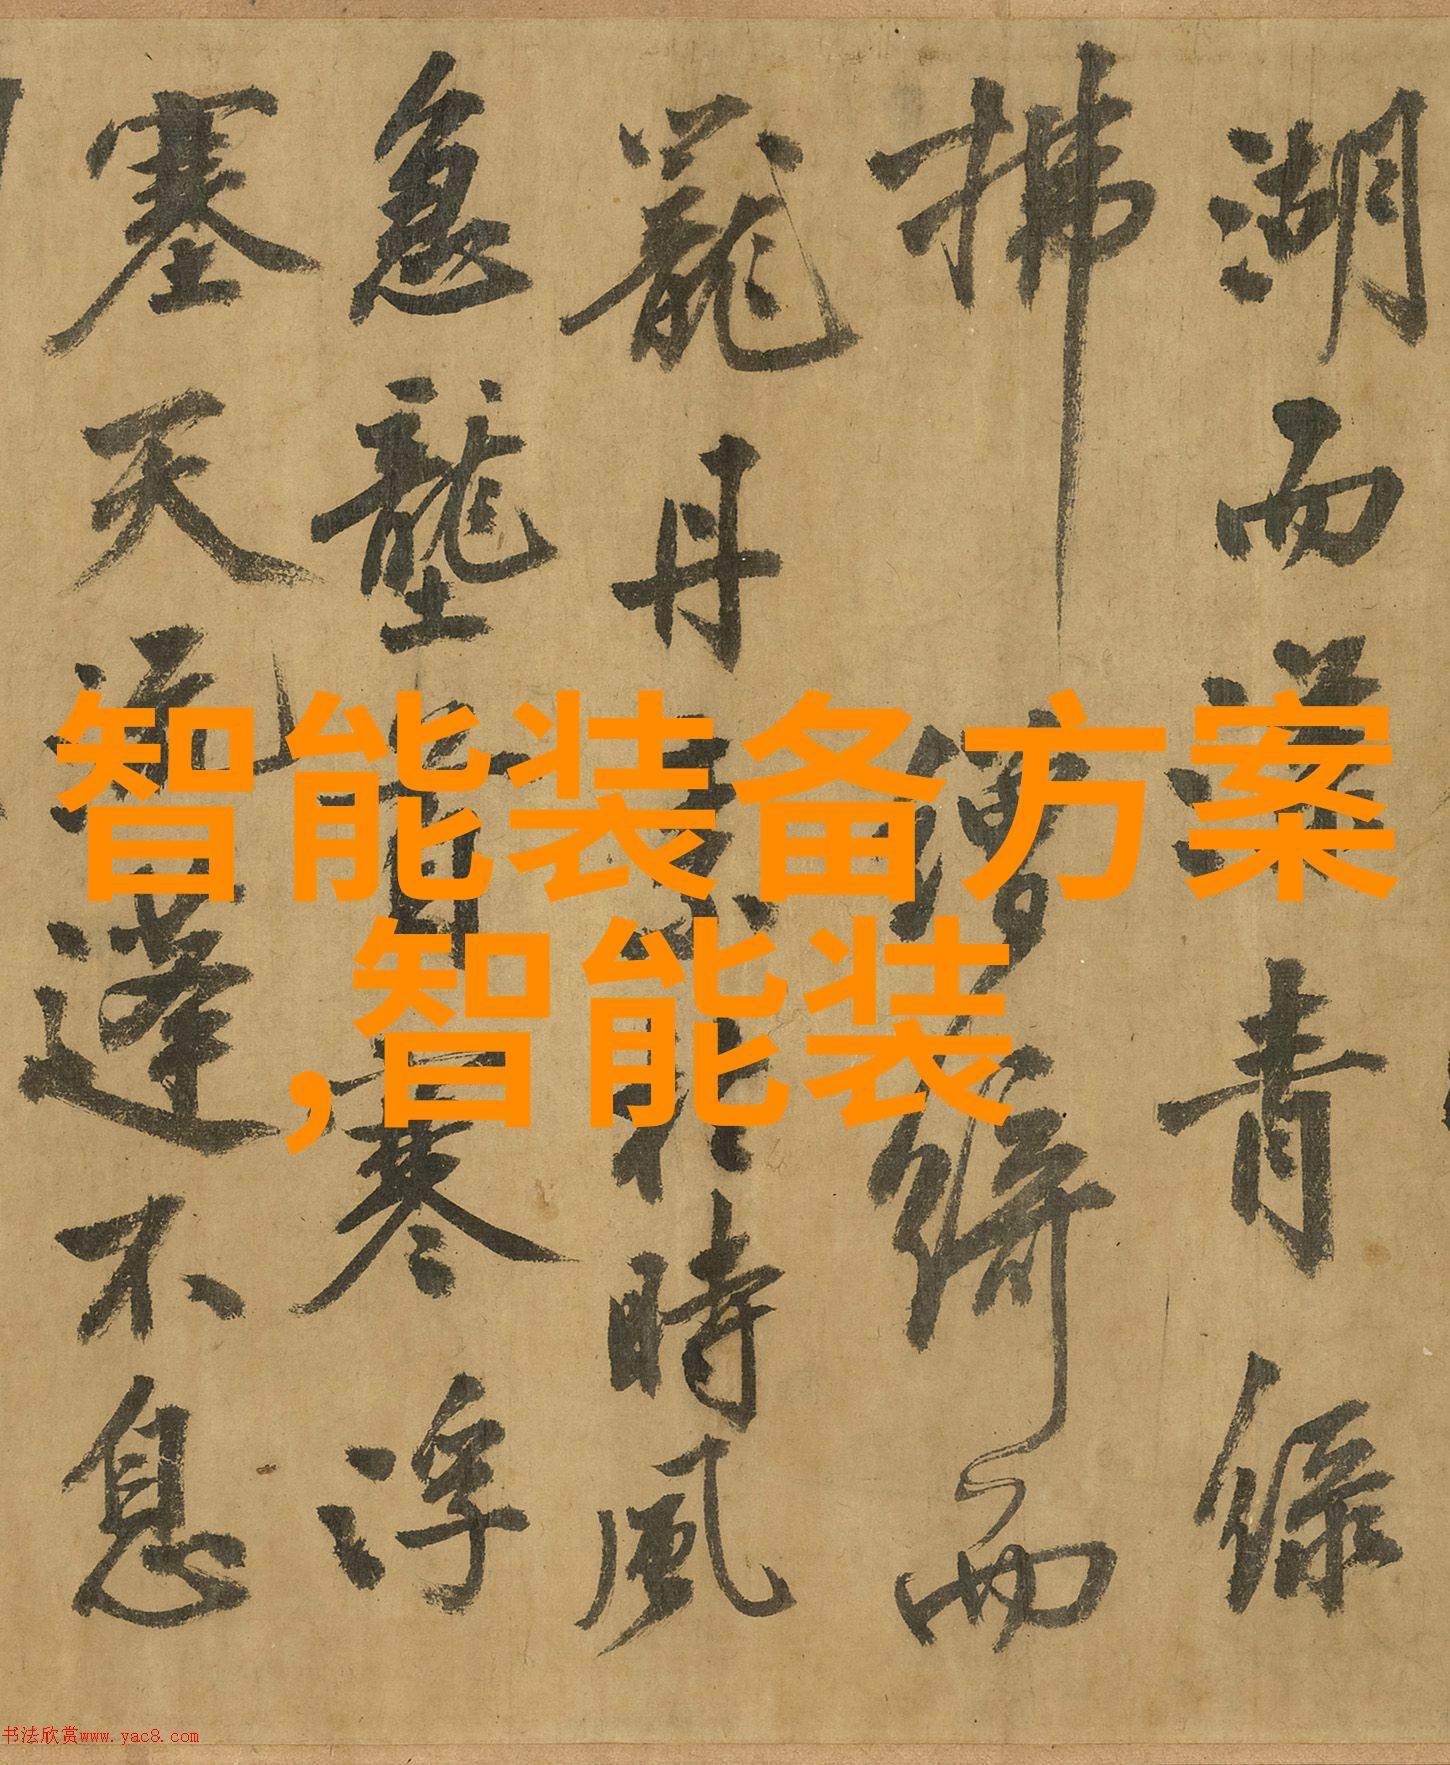 湖而青綠
拂繒綺而
籠丹於時風
急壟首寒浮
塞天流蓬不息
智能装备方案
,智能装
书法欣赏www.yac8.com